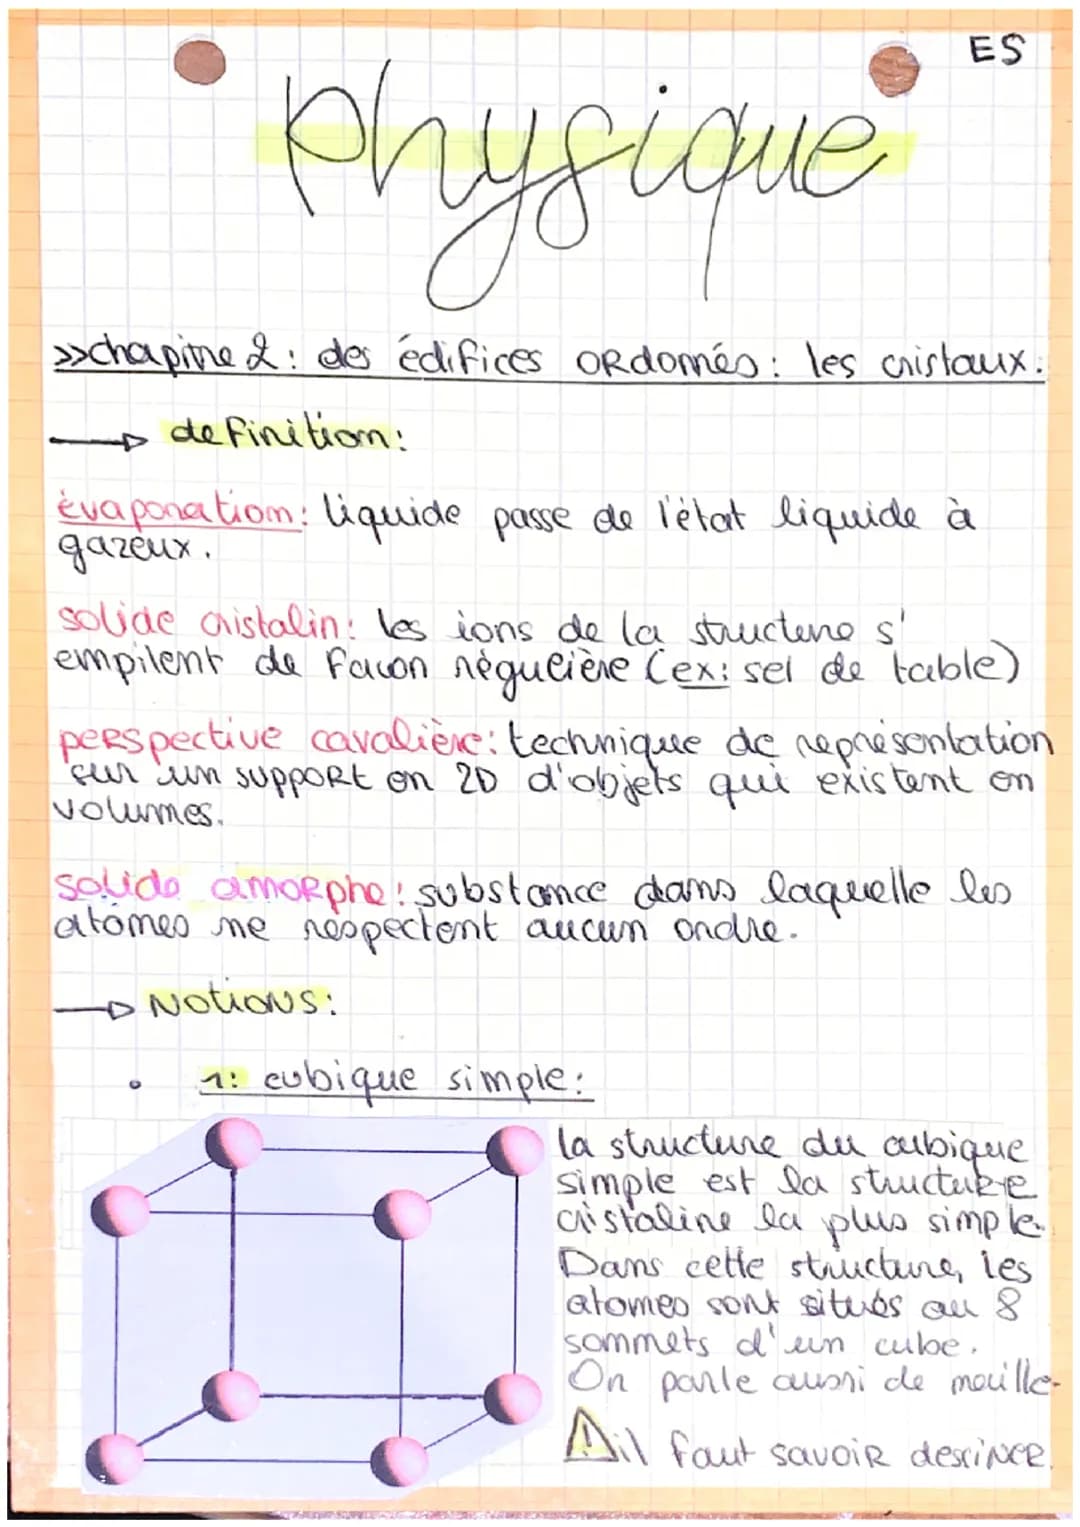 ES
Physique
>>chapitre 2: des édifices ORdonnés: les cristaux.
definition:
évaporation: liquide passe de l'état liquide à
gazeux.
solide cristalin: les ions de la structure s'
empilent de facon régulière (ex: sel de table)
perspective cavalière: technique de représentation
sur un support en 2D d'objets qui existent en
volumes.
solide amorphe: substance dans laquelle les
atomes ne respectent aucun ordre.
Notions:
1: cubique simple:
la structure du cubique
simple est la structure
cristaline la plus simple.
Dans cette structure, les
atomes sont situés au 8
sommets d'un cube.
On parle aussi de maille.
il faut savoir dessiner.